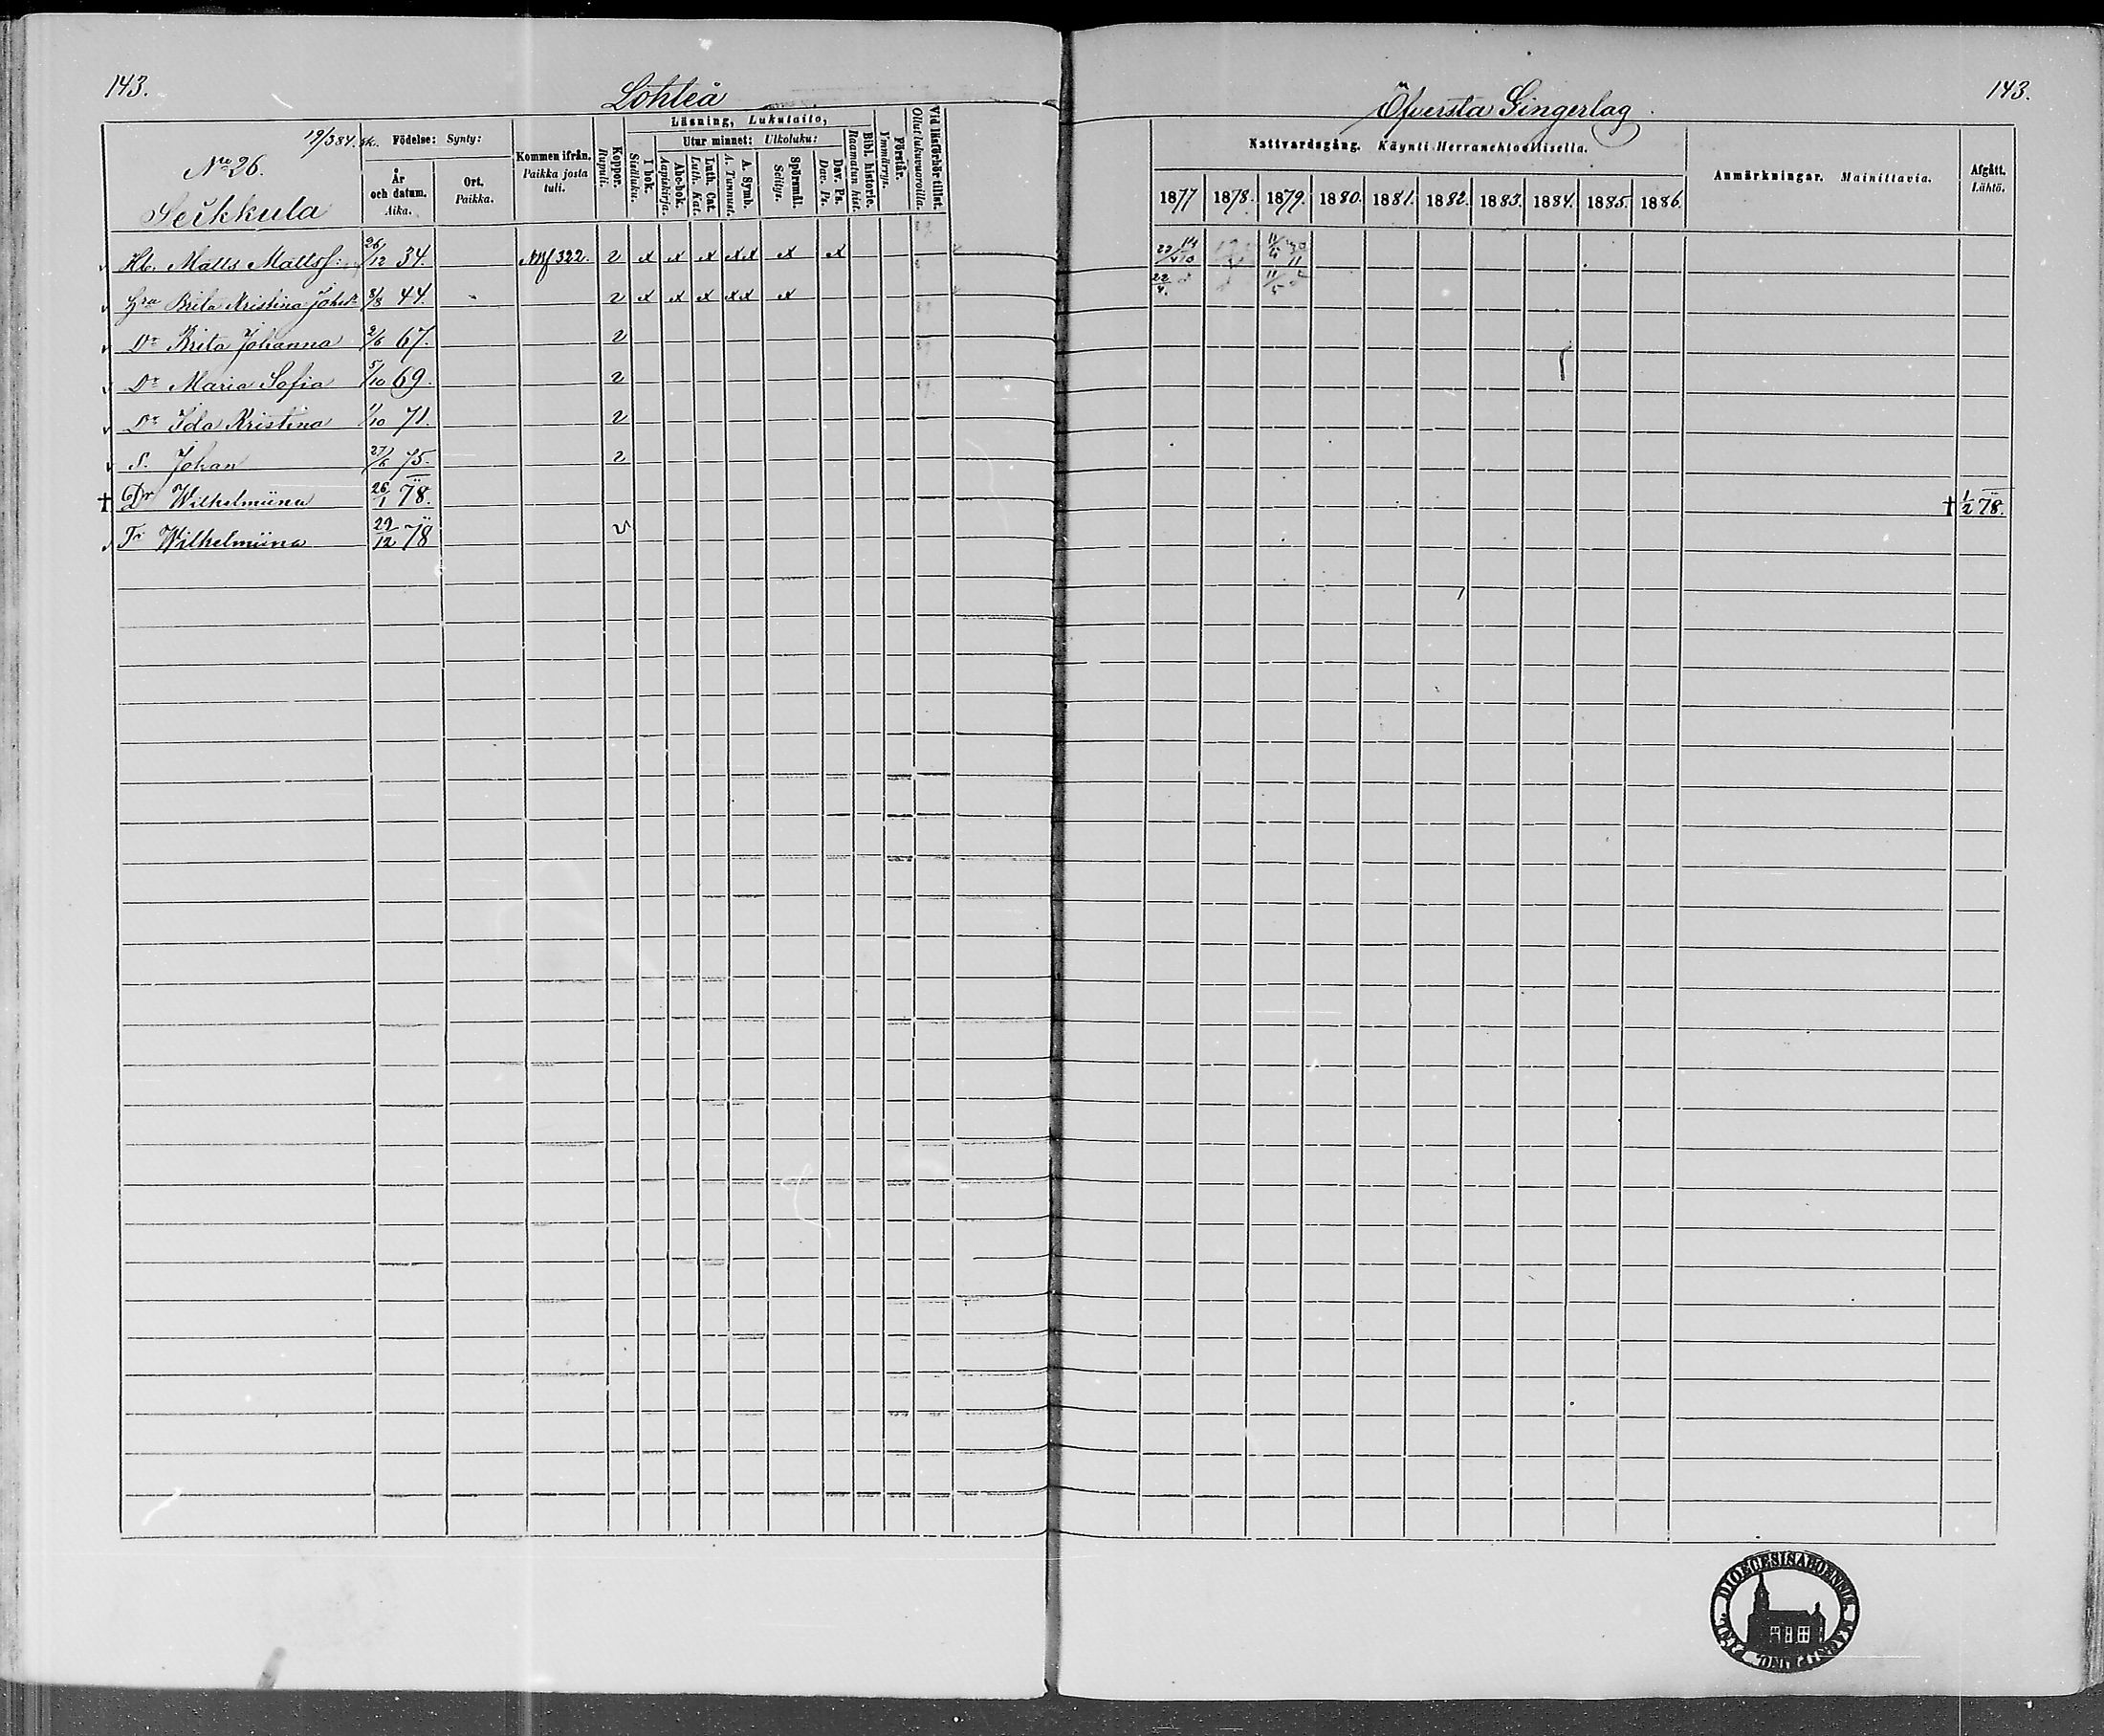 143.
Lohteå
Öfversta Gingerlag
143.
19/384. mk.
No 26.
Födelse: Synty:
År och datum. Aika.
Ort. Paikka.
Kommen ifrån. Paikka josta tuli.
Koppor. Rupuli.
Läsning, Lukutaito,
I bok. Sisäluku.
Utur minnet: Ulkoluku:
Abc-bok. Aapiskirja.
Luth. Cat. Luth. Kat.
A. Symb. A. Tunnust.
Spörsmål. Selitys.
Dav. Ps. Dav. Ps.
Bibl. historie. Raamatun hist.
Förstår. Ymmärrys.
Vid läsförhör tillst. Ollut lukuvuorolla.
Nattvardsgång. Käynti Herranehtoollisella.
1877 1878. 1879. 1880. 1881. 1882. 1883. 1884. 1885. 1886.
Anmärkningar. Mainittavia.
Afgått. Lähtö.
Matts Mattsf: 26/12 34. 322. 2 x x x xx x x
Hra Brita Kristina Johsdr 8/8 44. 2 x x x xx x 22/4.
Dr Brita Johanna 2/6 67. 2
Dr Maria Sofia 5/10 69. 2
Dr Ida Kristina 1/10 71. 2
S. Johan 27/6 75. 2
† Dr Wilhelmiina 26/1 78. † 1/2 78.
Wilhelmiina 22/12 78 2
DIOECESIS ABOENSIS